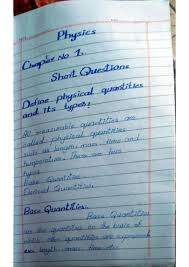 Physics
Chapter No 1.
Short Questions
Define physical quantities
and its types?
All measurable quantities are
called physical quantities
such as length, mass, time and
temperature. There are two
types
Base Quantities
Derived Quantities.
Base Quantities:
Base Quantities
are the quantities on the basis of
which other quantities are
length, mass, time